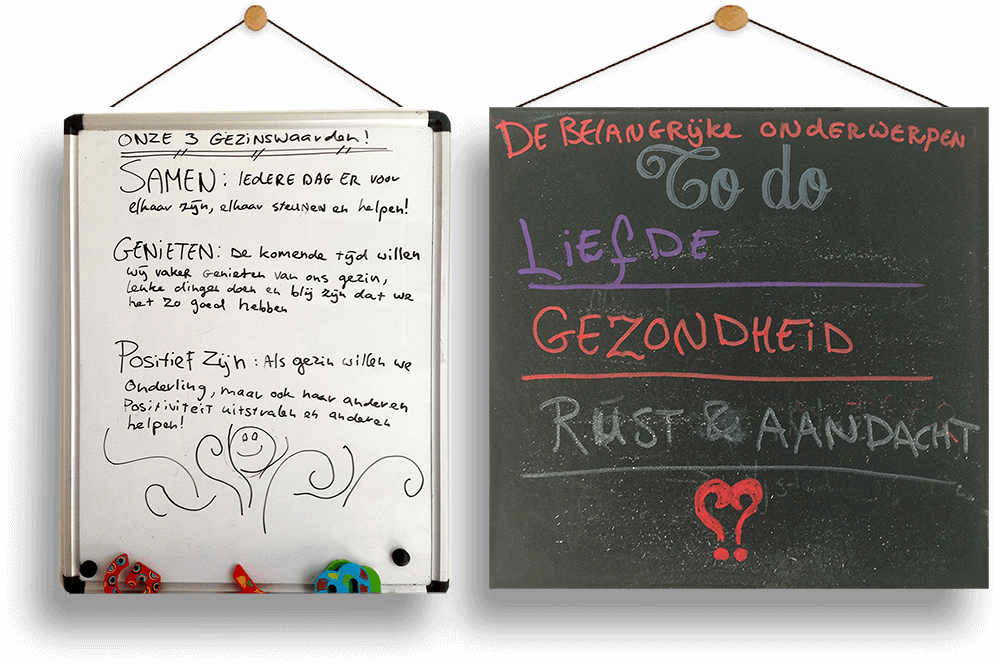 ONZE 3 GEZINSWAARDEN!
SAMEN: IEDERE DAG ER VOOR
elkaar zijn, elkaar steunen en helpen!
GENIETEN: De komende tijd willen
wij vaker genieten van ons gezin,
leuke dingen doen en blij zijn dat we
het zo goed hebben
Positief zijn: Als gezin willen we
onderling, maar ook naar anderen
Positiviteit uitstralen en anderen
helpen!
DE BELANGRijke ONDERWERPEN
To do
LiefDE
GEZONDHEiD
RUST & AANDACHT